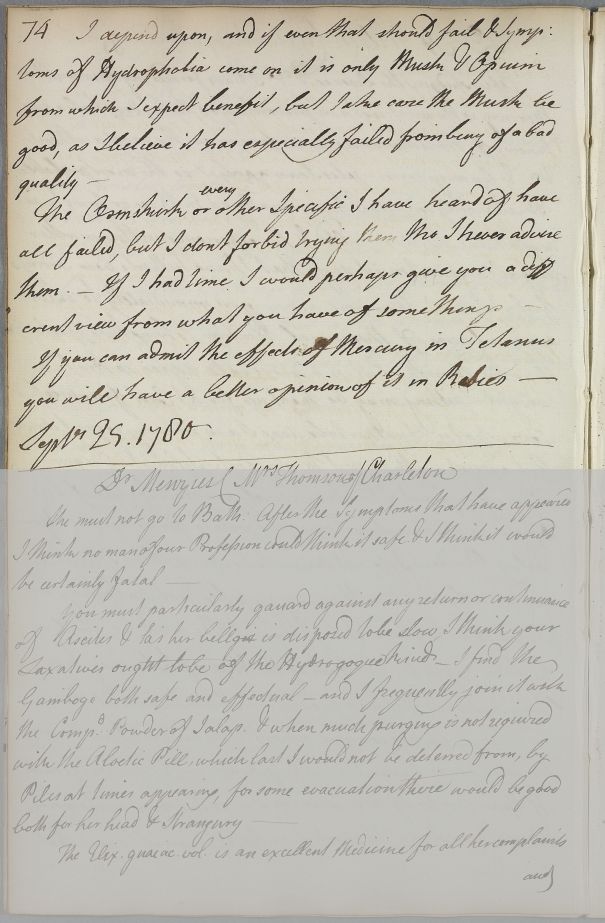 74 I depend upon, and if even that should fail & Symp:
toms of Hydrophobia come on it is only Musk & Opium
from which I expect benefit, but take care the Musk be
good, as I believe it has especially failed from being of a bad
quality —
every
The Ormskirk or other Specific I have heard of have
all failed, but I dont forbid trying them tho I never advise
them. — If I had time I would perhaps give you a diff
erent view from what you have of some things —
If you can admit the effects of Mercury in Tetanus
you will have a better opinion of it in Rabies —
Septr 25. 1780.
Dr Menzies (Mrs Thomson of Charleton
She must not go to Bath. After the Symptoms that have appeared
I think no man of our Profession could think it safe & I think it would
be certainly fatal —
You must particularly gauard against any return or continuance
of Ascites & as her belly is disposed to be slow, I think your
Laxatives ought to be of the Hydrogogue kind — I find the
Gamboge both safe and effectual — and I frequently join it with
the Compd. Powder of Jalap. & when much purging is not required
with the Aloetic Pill, which last I would not be deterred from, by
Piles at times appearing, for some evacuation there would be good
both for her head & Strangury —
The Elix. guaiac. vol. is an excellent Medicine for all her complaints
and